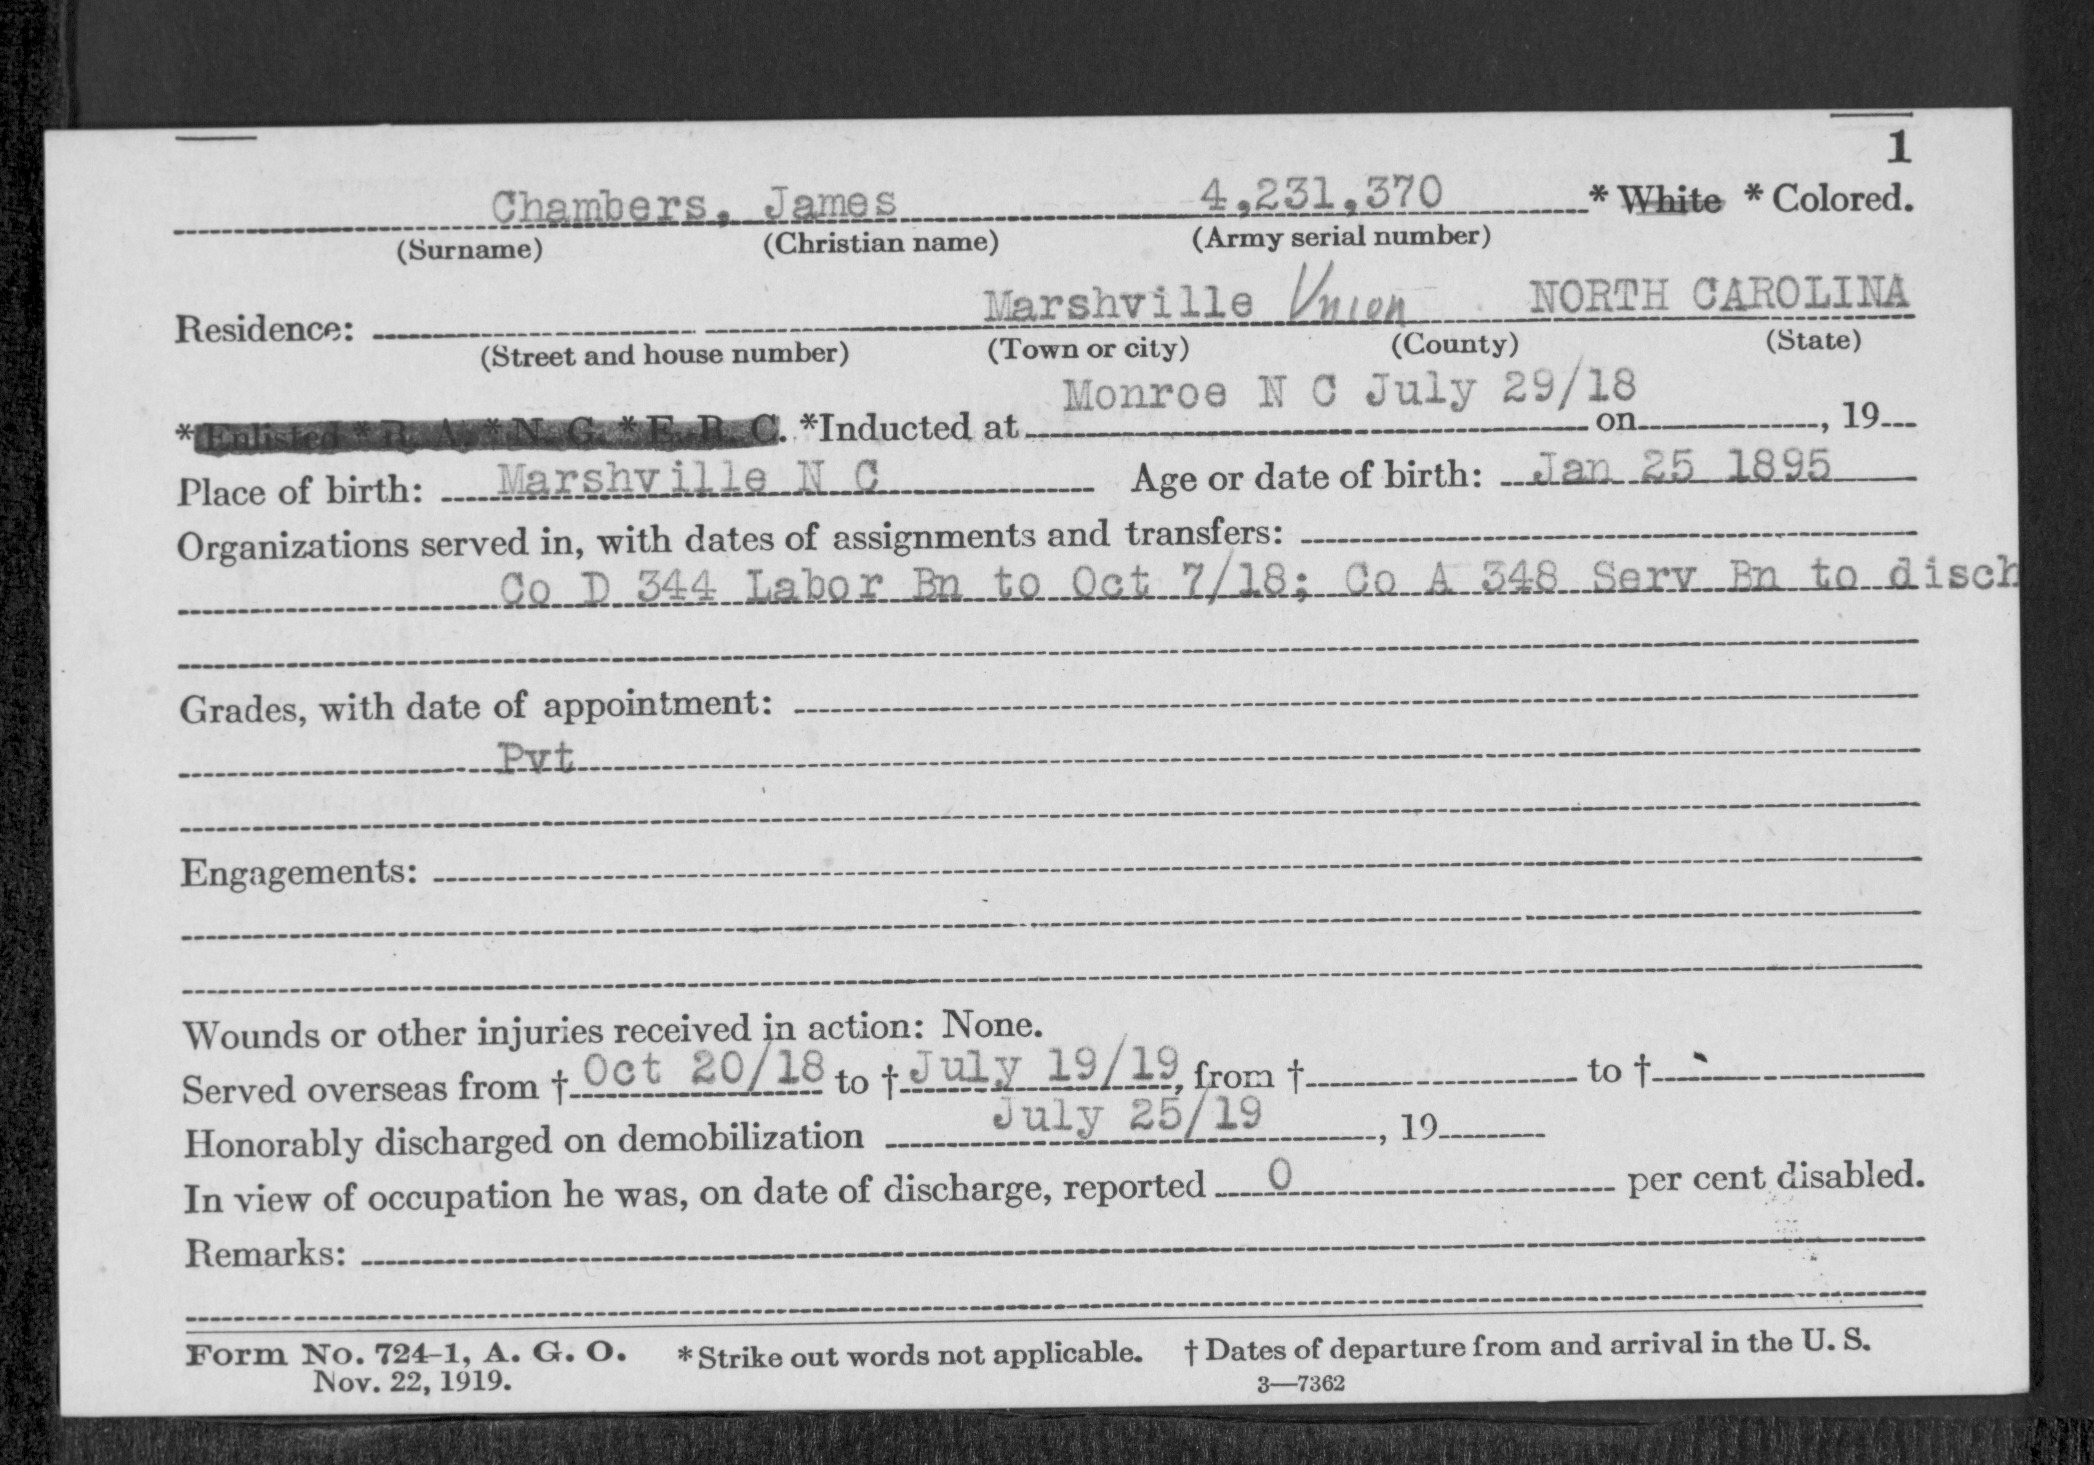 1
Chambers, James 4,231,370 * White * Colored.
(Surname) (Christian name) (Army serial number)
Residence: Marshville Union NORTH CAROLINA
(Street and house number) (Town or city) (County) (State)
Monroe N C July 29/18
*Enlisted * R. A. * N. G. * E. R. C. *Inducted at on , 19
Place of birth: Marshville N C Age or date of birth: Jan 25 1895
Organizations served in, with dates of assignments and transfers:
Co D 344 Labor Bn to Oct 7/18; Co A 348 Serv Bn to disch
Grades, with date of appointment:
Pvt
Engagements:
Wounds or other injuries received in action: None.
Served overseas from † Oct 20/18 to † July 19/19, from † to †
Honorably discharged on demobilization July 25/19, 19
In view of occupation he was, on date of discharge, reported 0 per cent disabled.
Remarks:
Form No. 724-1, A. G. O. *Strike out words not applicable. † Dates of departure from and arrival in the U. S.
Nov. 22, 1919. 3—7362